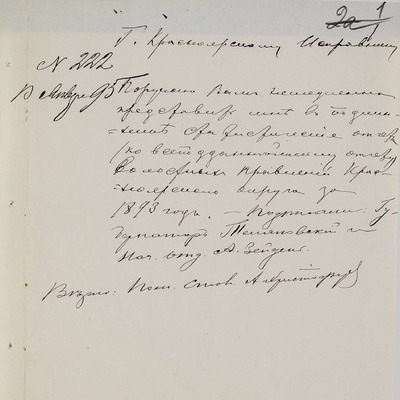 1
2а
Г. Красноярскому Исправнику
N 222
В Январе 95 Поручаю Вамъ немедленно
представить мнѣ въ подлин-
=никѣ статистические отчеты
ко всеподданнѣйшему отчету
Волостныхъ правлений Крас-
=ноярскаго округа за
1893 годъ. — Подписали: Гу-
бернаторъ Теляковский и
Нач. отд. А. Зейдель.
Вѣрно: Пом. Стол.